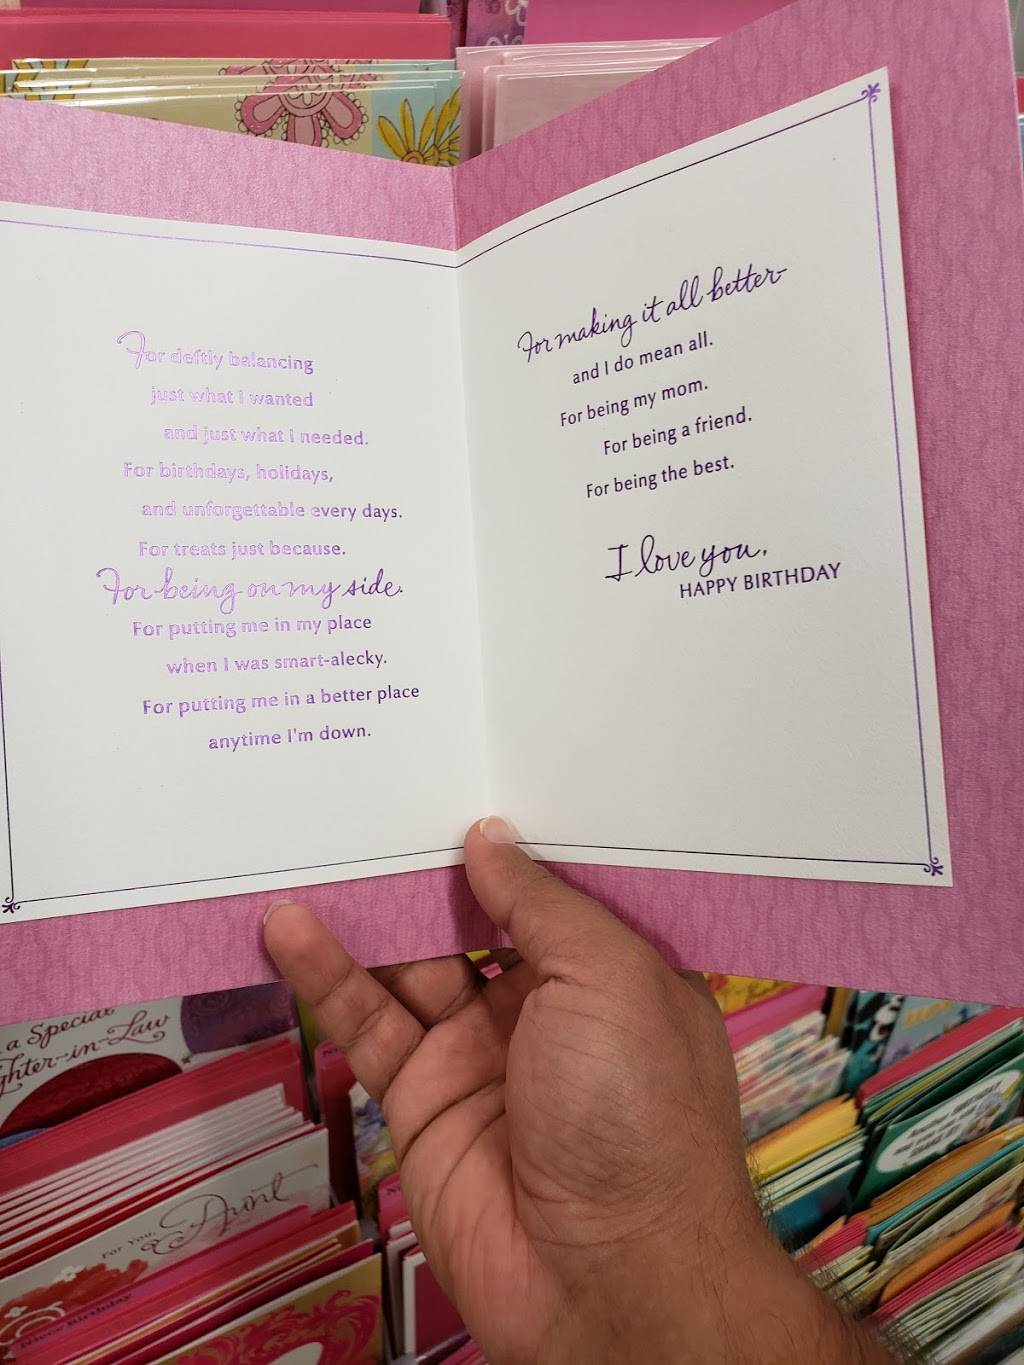 For deftly balancing
just what I wanted
and just what I needed.
For birthdays, holidays,
and unforgettable every days.
For treats just because.
For being on my side.
For putting me in my place
when I was smart-alecky.
For putting me in a better place
anytime I'm down.
For making it all better
and I do mean all.
For being my mom.
For being a friend.
For being the best.
I love you.
HAPPY BIRTHDAY
a Special
ghter-in-Law
For You,
Aunt
Niece Birthday